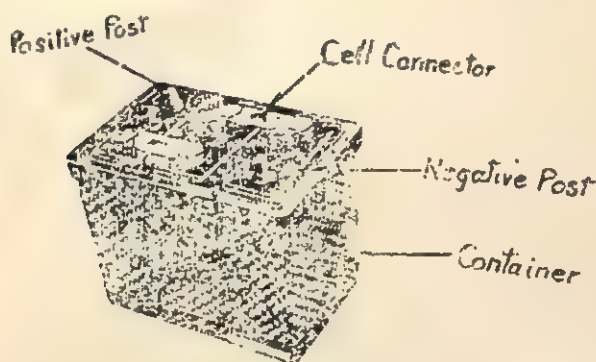 Positive Post
Cell Connector
Negative Post
Container